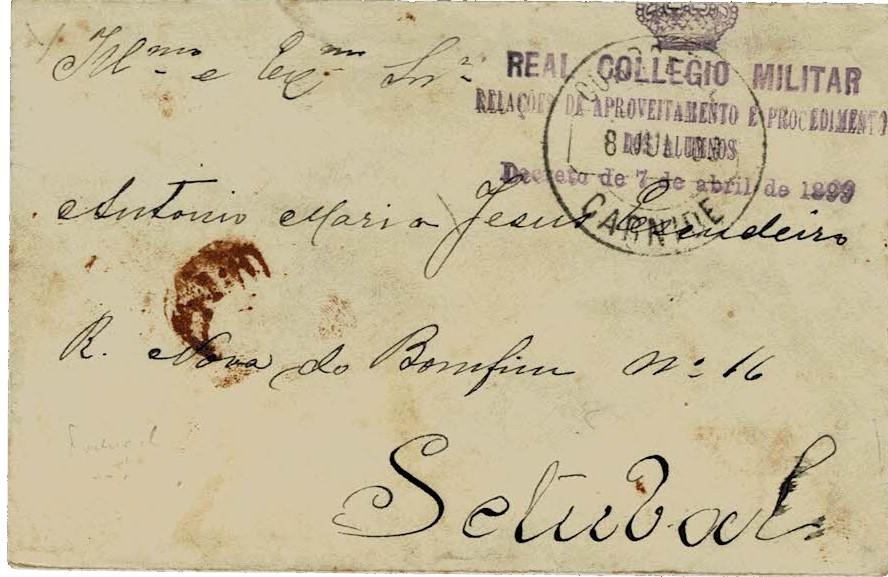 Illmo e Exmo Snr
REAL COLLEGIO MILITAR
RELAÇÕES DE APROVEITAMENTO E PROCEDIMENTO
DOS ALUMNOS
Decreto de 7 de abril de 1899
8 JUL
CARNIDE
Antonio Maria Jesus
R. Nova do Bomfim Nº 16
Setubal